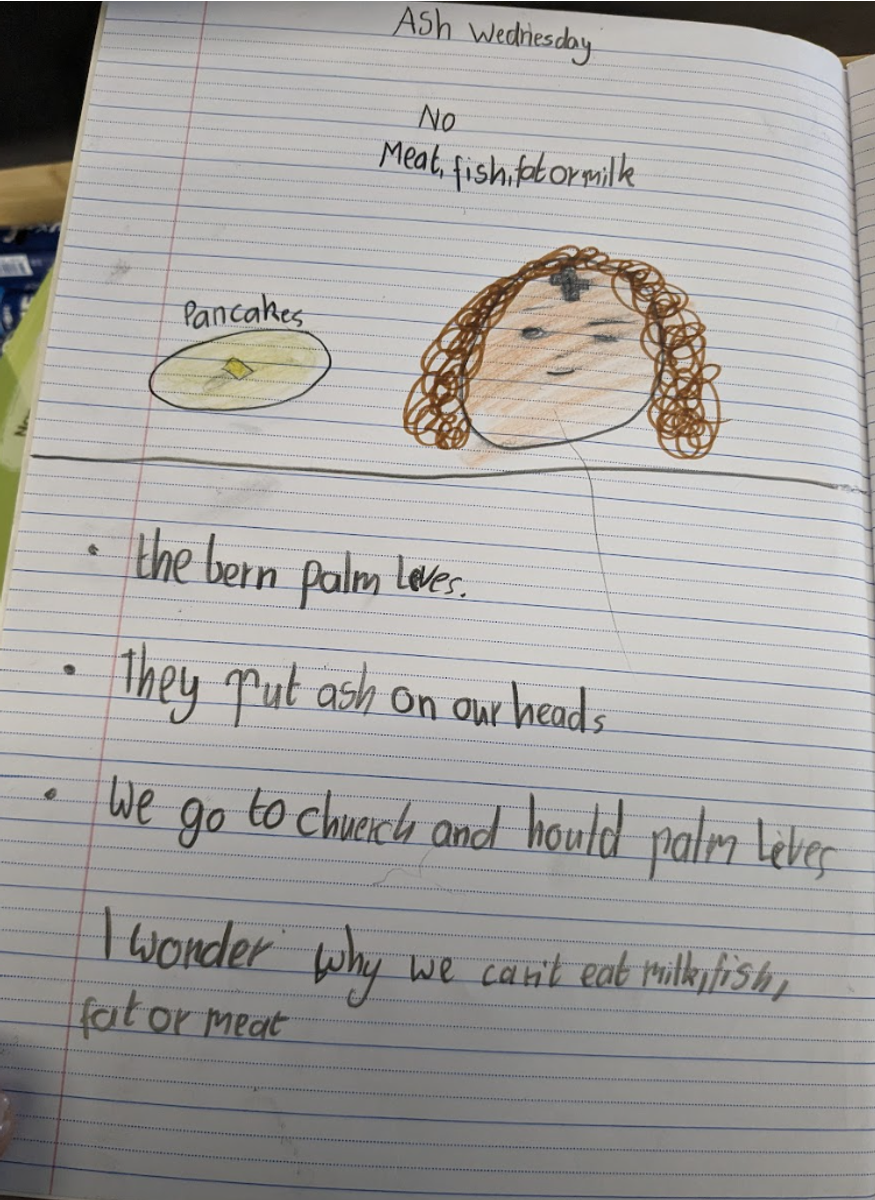 Ash Wednesday
No
Meat, fish, fat or milk
Pancakes
• the bern palm leves.
• They put ash on our heads
• We go to chuerch and hould palm leves
I wonder why we can't eat milk, fish,
fat or meat